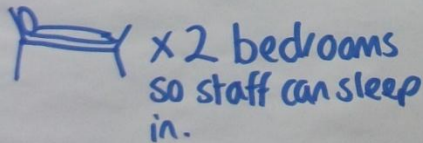 x 2 bedrooms
so staff can sleep
in.